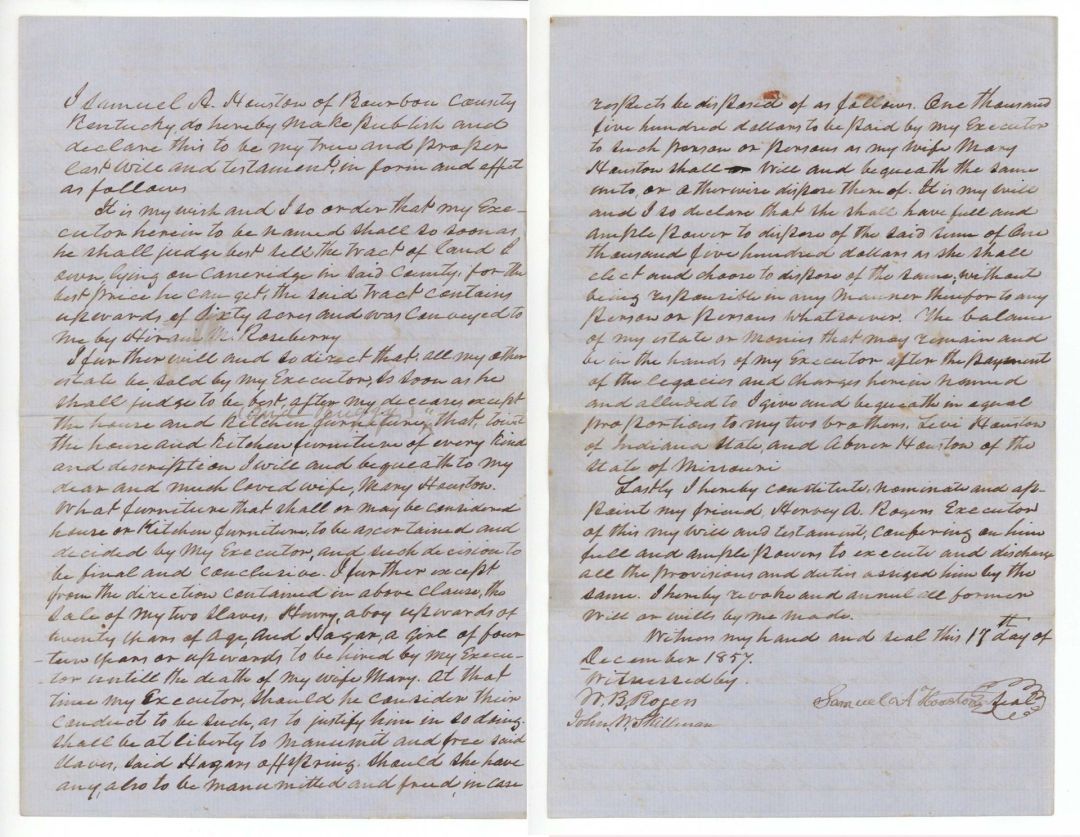 I Samuel A. Houston of Bourbon County
Kentucky, do hereby make publish and
declare this to be my true and proper
last Will and testament, in form and effect
as follows
It is my wish and I so order that my Exe-
cutor herein to be named shall so soon as
he shall judge best sell the tract of land I
own, lying on Caneridge in said County, for the
best price he can get, the said tract contains
upwards of Sixty acres and was conveyed to
me by Hiram M. Roseberry
I further will and so direct that, all my other
estate be, sold by my Executor, as soon as he
shall judge to be best, after my decease, except
the house and kitchen furniture, that, towit
the house and kitchen furniture of every kind
and description I will and bequeath to my
dear and much loved wife, Mary Houston.
What furniture that shall or may be considered
house or Kitchen furniture, to be ascertained and
decided by My Executor, and such decision to
be final and conclusive. I further except
from the direction contained in above clause, the
sale of my two slaves, Henry, a boy upwards of
twenty years of age, and Hagar, a girl of four-
-teen years or upwards to be hired by my Execu-
-tor untill the death of my wife Mary. At that
time my Executor, should he consider their
conduct to be such, as to justify him in so doing.
shall be at liberty to manumit and free said
slaves, said Hagars offspring. Should she have
any, also to be manumitted and freed, in case
respects be disposed of as follows. One thousand
five hundred dollars to be paid by my Executor
to such person or persons as my wife Mary
Houston shall Will and bequeath the same
unto, or otherwise dispose thereof. It is my will
and I so declare that she shall have full and
ample power to dispose of the said sum of One
thousand five hundred dollars as she shall
elect and choose to dispose of the same, without
being responsible in any manner therefor to any
person or persons whatsoever. The balance
of my estate or monies that may remain and
be in the hands of my Executor after the payment
of the legacies and charges herein named
and alluded to I give and bequeath in equal
proportions to my two brothers, Levi Houston
of Indiana State, and Abner Houston of the
State of Missouri
Lastly I hereby constitute, nominate and ap-
point my friend, Hervey A. Rogers Executor
of this my Will and testament, confering on him
full and ample powers to execute and discharge
all the provisions and duties assigned him by the
same. I hereby revoke and annul all former
will or wills by me made.
Witness my hand and seal this 17th day of
December 1857.
Witnessed by.
W. B. Rogers
Samuel A Houston Seal
John. W. Skillman